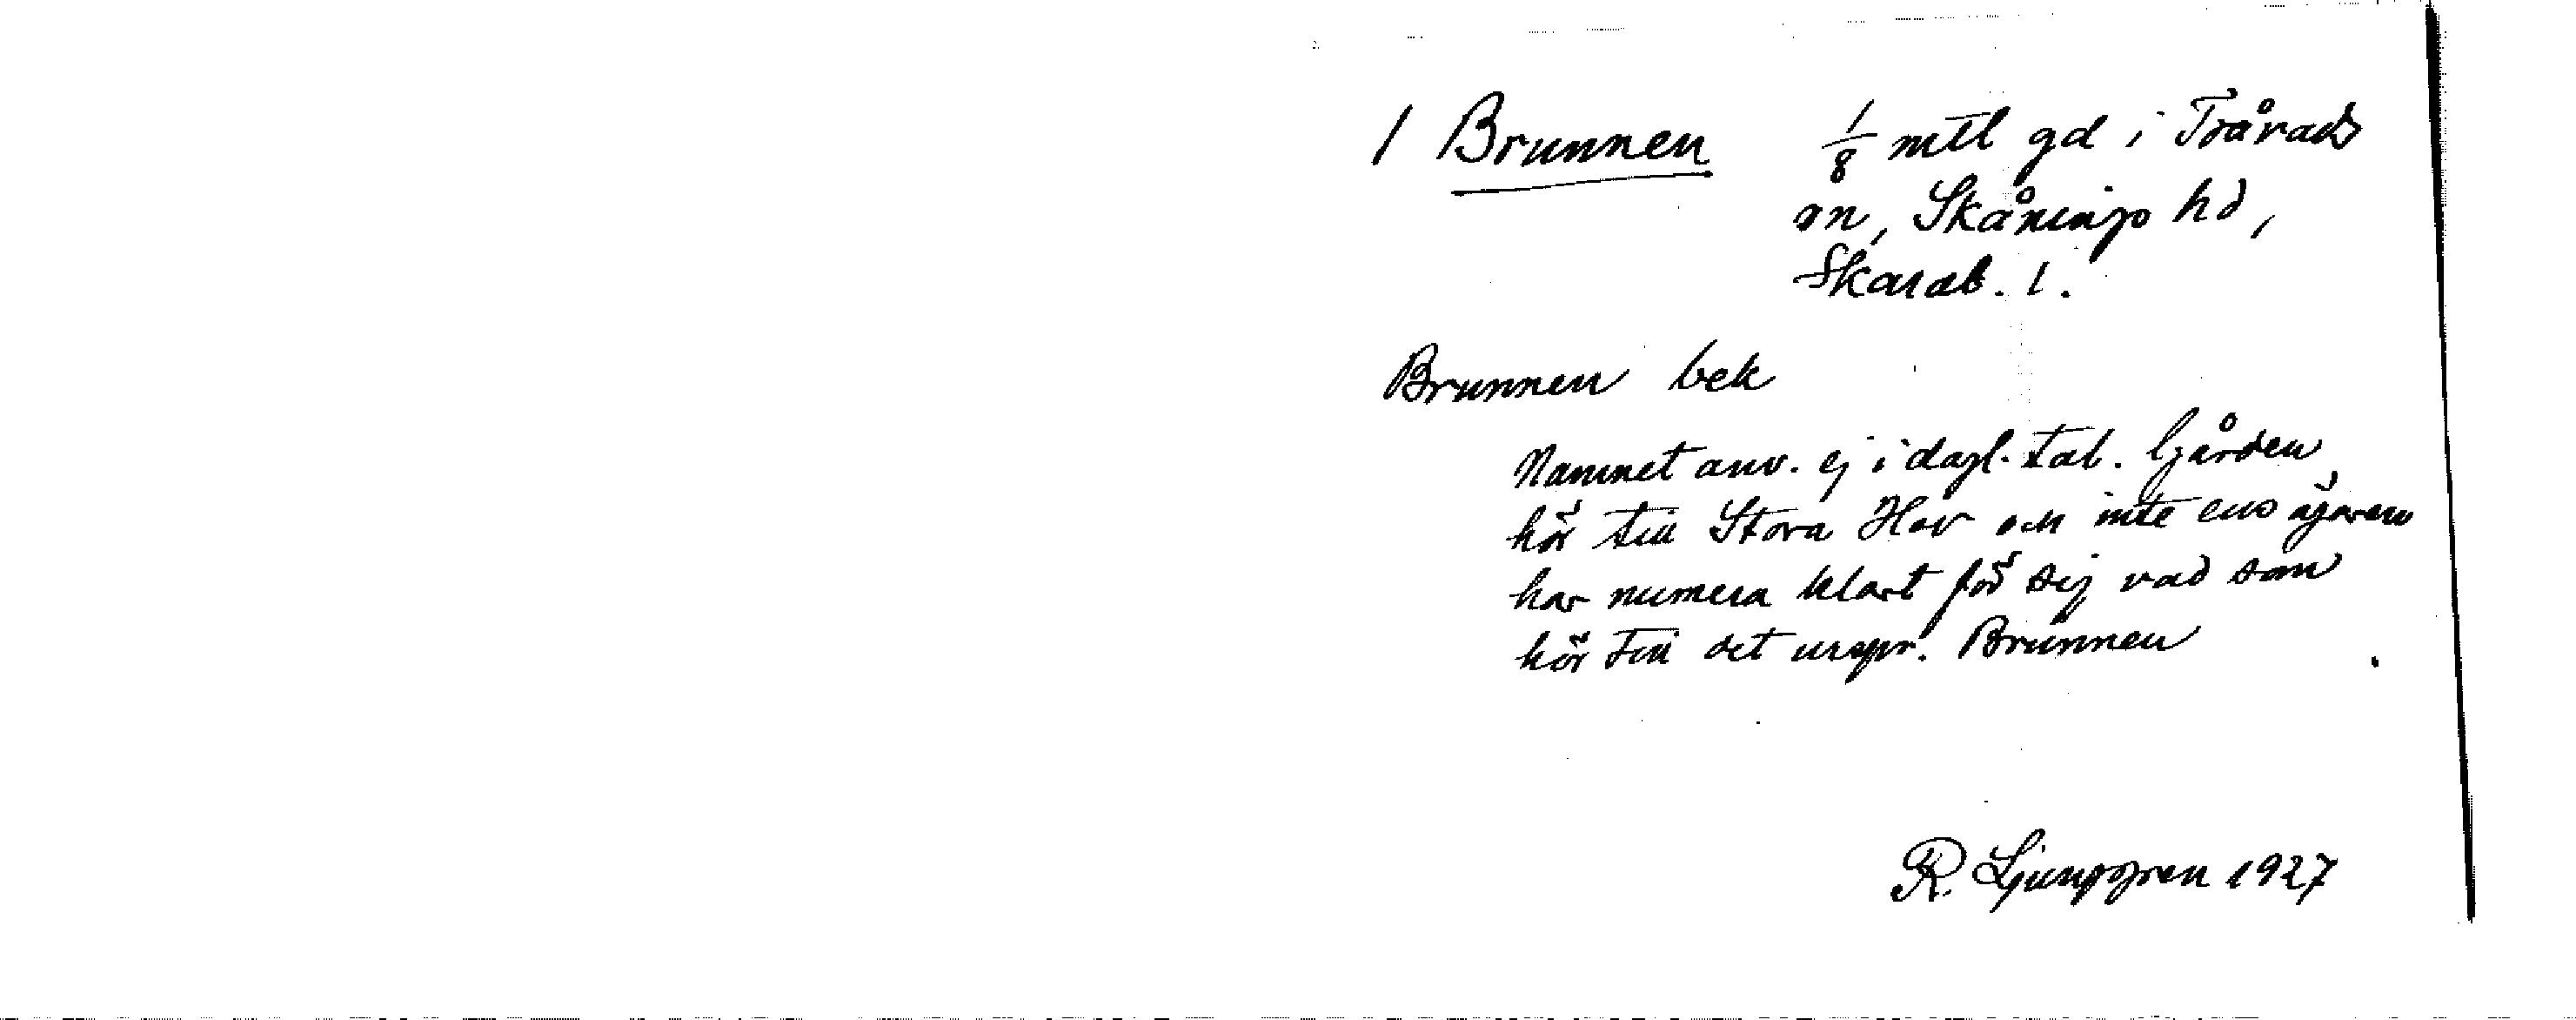 1 Brunnen 1/8 mtl gd i Tråvads
sn, Skånings hd,
Skarab. l.
Brunnen bek
Namnet anv. ej i dagl. tal. Gården
hör till Stora Hov och inte ens ägaren
har numera klart för sig vad som
hör till det urspr. Brunnen
R. Ljunggren 1927